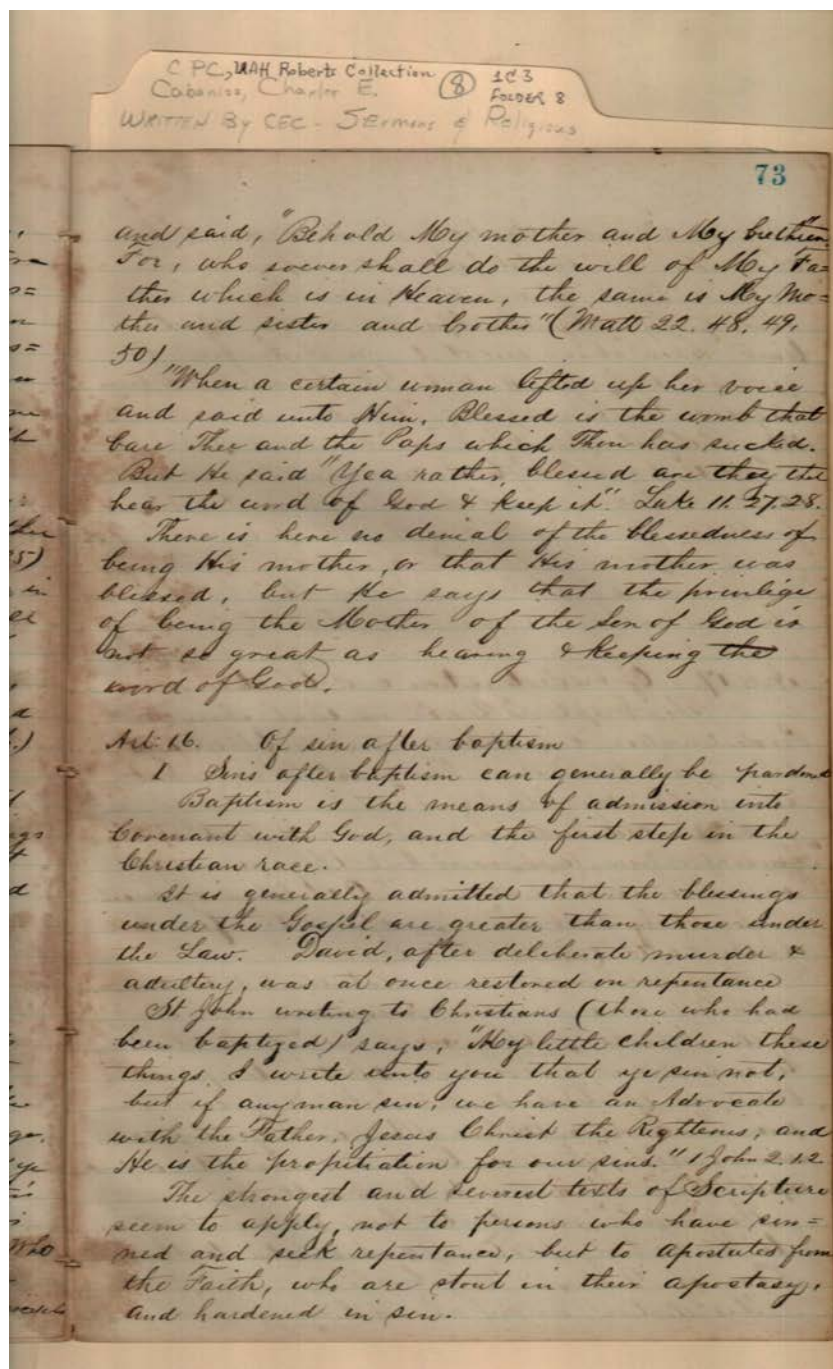 C PC, UAH Roberts Collection
Cabaniss, Charles E. 8 1C3
FOLDER 8
WRITTEN By CEC - Sermons & Religious
73
and said, "Behold My mother and My brethren"
For, who soever shall do the will of My Fa=
ther which is in Heaven, the same is My Mo=
ther and sister and brother" (Matt 22. 48, 49,
50)
"When a certain woman lifted up her voice
and said unto Him, Blessed is the womb that
bare Thee and the Paps which Thou has sucked.
But He said "Yea rather, blessed are they that
hear the word of God & keep it". Luke 11. 27. 28.
There is here no denial of the blessedness of
being His mother, or that His mother was
blessed, but He says that the privilige
of being the Mother of the Son of God is
not so great as hearing & keeping the
word of God.
Art. 16. Of sin after baptism
1 Sins after baptism can generally be pardoned
Baptism is the means of admission into
Covenant with God, and the first step in the
Christian race.
It is generally admitted that the blessings
under the Gospel are greater than those under
the Law. David, after deliberate murder &
adultery, was at once restored on repentance
St John writing to Christians (those who had
been baptized) says, "My little children these
things I write unto you that ye sin not,
but if any man sin, we have an Advocate
with the Father, Jesus Christ the Righteous, and
He is the propitiation for our sins." 1 John 2. 1.2
The strongest and severest texts of Scripture
seem to apply, not to persons who have sin=
ned and seek repentance, but to apostates from
the Faith, who are stout in their apostasy,
and hardened in sin.